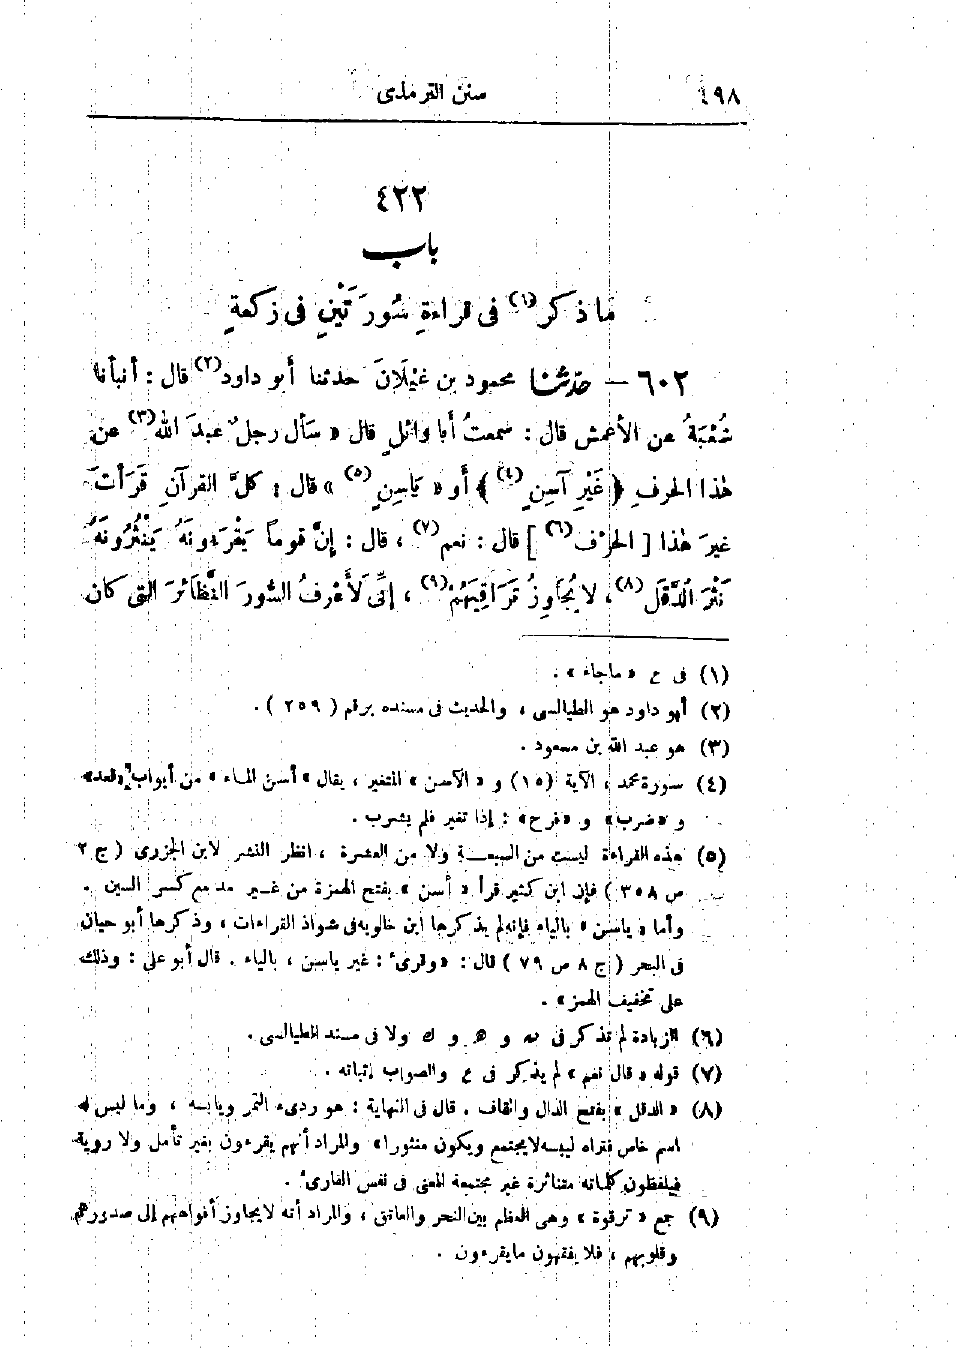 ٤٩٨
سنن الترمذى
٤٢٢
باب
ما ذكر (١) فى قراءةِ سُورَتَيْنِ فى ركعةٍ
٦٠٢ — حدثنا محمود بن غَيْلَانَ حدثنا أبو داود (٢) قال : أنبأنا
شُعْبَةُ عن الأعمش قال : سمعتُ أبا وائلٍ قال « سأل رجلٌ عبدَ الله (٣) عن
هذا الحرفِ ﴿ غَيْرِ آسِنٍ (٤) ﴾ أو « يَاسِنٍ (٥) » قال : كلَّ القرآنِ قَرَأْتَ
غيرَ هذا [ الحرْف (٦) ] قال : نعم (٧) ، قال : إنَّ قوماً يَقْرَءونَهُ يَنْثُرُونَهُ
نَثْرَ الدَّقَلِ (٨) ، لا يُجَاوِزُ تَرَاقِيَهُمْ (٩) ، إنِّى لَأَعْرِفُ السُّورَ النَّظَائرَ التى كان
(١) فى ع « ماجاء » .
(٢) أبو داود هو الطيالسى ، والحديث فى مسنده برقم ( ٢٥٩ ) .
(٣) هو عبد الله بن مسعود .
(٤) سورة محمد ، الآية (١٥) و « الآسن » المتغير ، يقال « أسن الماء » من أبواب «قعد»
و «ضرب» و «فرح» : إذا تغير فلم يشرب .
(٥) هذه القراءة ليست من السبعة ولا من العشرة ، انظر النشر لابن الجزرى ( ج ٢
ص ٣٥٨ ) فإن ابن كثير قرأ « أسن » بفتح الهمزة من غير مد مع كسر السين .
وأما « ياسن » بالياء فإنه لم يذكرها ابن خالويه فى شواذ القراءات ، وذكرها أبو حيان
فى البحر ( ج ٨ ص ٧٩ ) قال : «وقرىء : غير ياسن ، بالياء . قال أبو على : وذلك
على تخفيف الهمز» .
(٦) الزيادة لم تذكر فى نه و ه و ك ولا فى مسند الطيالسى .
(٧) قوله « قال نعم » لم يذكر فى ع والصواب إثباته .
(٨) « الدقل » بفتح الدال والقاف . قال فى النهاية : هو ردىء التمر ويابسه ، وما ليس له
اسم خاص فتراه ليبسه لايجتمع ويكون منثورا» والمراد أنهم يقرءون بغير تأمل ولا روية
فيلفظون كلماته متناثرة غير مجتمعة المعنى فى نفس القارىء .
(٩) جمع « ترقوة » وهى العظم بين النحر والعاتق ، والمراد أنه لا يجاوز أفواههم إلى صدورهم
وقلوبهم ، فلا يفقهون مايقرءون .